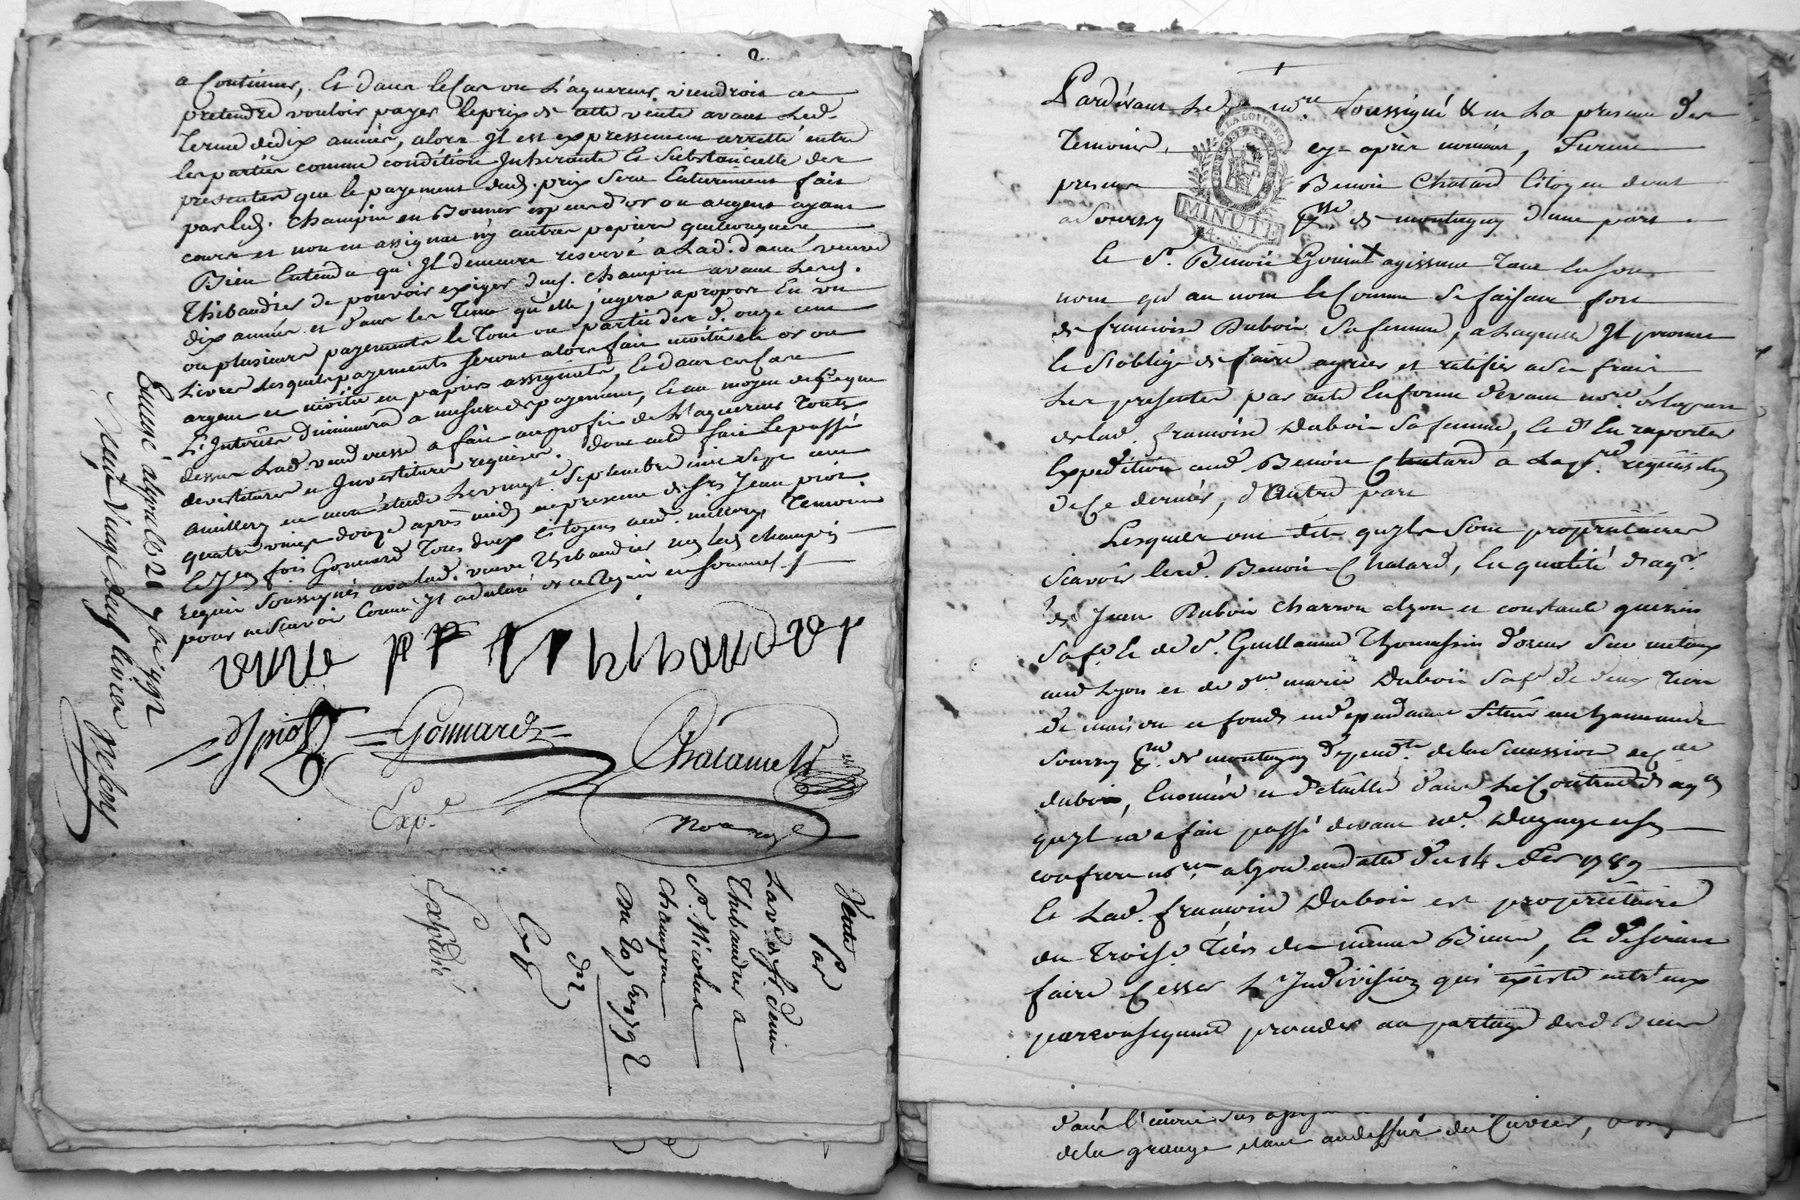 2
a Continuer, Et dans le Cas ou L'aquereur viendroit a
pretendre vouloir payer le prix de cette vente avant led.
Terme de dix années, alors Il est expressement arretté entre
les parties comme condition Inherante Et Substancielle des
presentes que le payement dud. prix Sera Entierement fait
par led. Champin en Bonnes especes d'or ou argent ayant
cours et non en assignat ny autres papiers quelconques,
Bien Entendu qu'Il demeure reservé a Lad. dame veuve
Thibaudier de pouvoir exiger dud. Champin avant lesd.
dix années et dans les Tems qu'elle jugera apropos En un
ou plusieurs payements le Tout ou partie des d. onze cent
Livres Lesquels payements Seront alors fait moitié en or ou
argent et moitié en papiers assignats, Et dans ce Cas
L'Interêts diminuera a mesure des payement, Et au moyen de ce que
dessus Lad. venderesse a fait au profit de L'aquereur Toutes
devestitures et Investitures requises. dont acte fait Et passé
a millery en mon étude Le vingt Septembre mil Sept cent
quatre vingt douze après midy en presence de Srs Jean piot
Et Jean fois Gonnard Tous deux Citoyens aud. millery, Temoins
requis Soussignés avec lad. veuve Thibaudier non led. Champin
pour ne Scavoir comme Il a declaré de ce Requis Et Sommé
veuve Thibaudier
J piot
Gonnard
Chalamel
Exp.
Nore
Enrené a lyon le 21 7bre 1792
Reçu vingt Sept livres
Vente
Par
La ve de fr. denis
Thibaudier a
Sr. Nicolas
Champin
Du 20 7bre 1792
Expedié
Pardevant Le Nore Soussigné & en La presence des
Temoins, cy-après nommés, Furent
presens Benoit Chatard Citoyen demt
a Sourzy psse de montagny d'une part
LA LOI LE ROI
MINUTE
4. S.
Le Sr. Benoit Gonint agissant Tant En Son
nom qu'au nom Et Comme Se faisant fort
de francoise Dubois Sa femme, a Laquelle Il promet
Et S'oblige de faire agréer et ratifier a Ses frais
Les presentes par acte En forme devant nore
delad. francoise Dubois Sa femme, Et d'En raporter
Expedition aud. Benoit Chatard a La pre. requisition
de ce dernier, d'Autre part
Lesquels ont dit qu'Ils Sont proprietaires
Scavoir led. Benoit Chatard, En qualité d'aqr.
de Jean Dubois charron a lyon et constante guerin
Saf. Et de Sr. Guillaume Thomassin doreur Sur metaux
aud Lyon et de dme marie Dubois Saf. de deux Tiers
de maison et fonds independament Situés au hameau de
Sourzy psse. de montagny dependt. de la Succession de
dubois, Enoncée et detaillés dans Le Contract d'aqon
qu'Il en a fait passé devant me. Dugueyt et Son
confrere nores a lyon en datte du 14 1789
Et Lad. francoise Dubois est proprietaire
du Troise. Tiers des mêmes Biens, Et desirant
faire Cesser L'Indivision qui existe entr'eux
par consequent proceder au partage desd Biens
dans l'écurie
de la grange etant audessus du Cuvier,